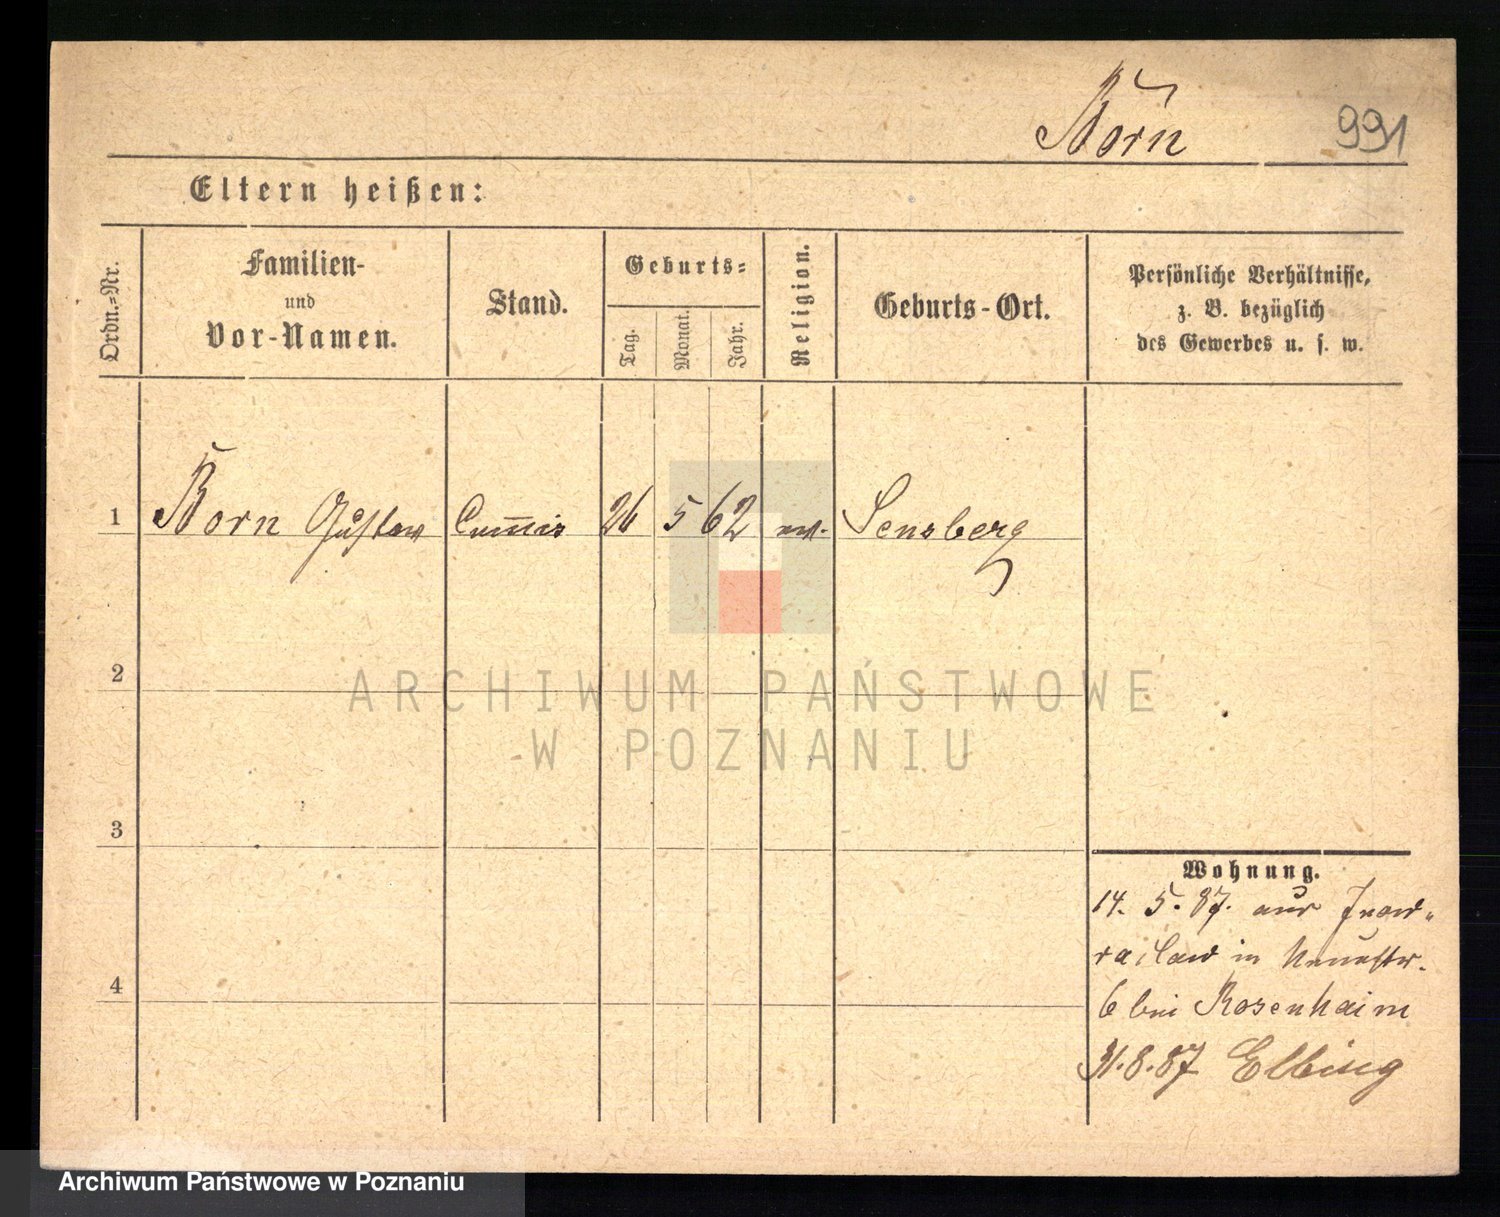 Born 991
Eltern heißen:
Ordn.=Nr.
Familien-
und
Vor-Namen.
Stand.
Geburts=
Tag.
Monat.
Jahr.
Religion.
Geburts-Ort.
Persönliche Verhältnisse,
z. B. bezüglich
des Gewerbes u. s. w.
1 Born Gustav Com̅is 26 5 62 ev. Sensberg
2
3
4
Wohnung.
14. 5. 87. aus Inow-
raclaw in Neuestr.
6 bei Rosenhaim
31.8.87 Elbing
ARCHIWUM PAŃSTWOWE
W POZNANIU
Archiwum Państwowe w Poznaniu